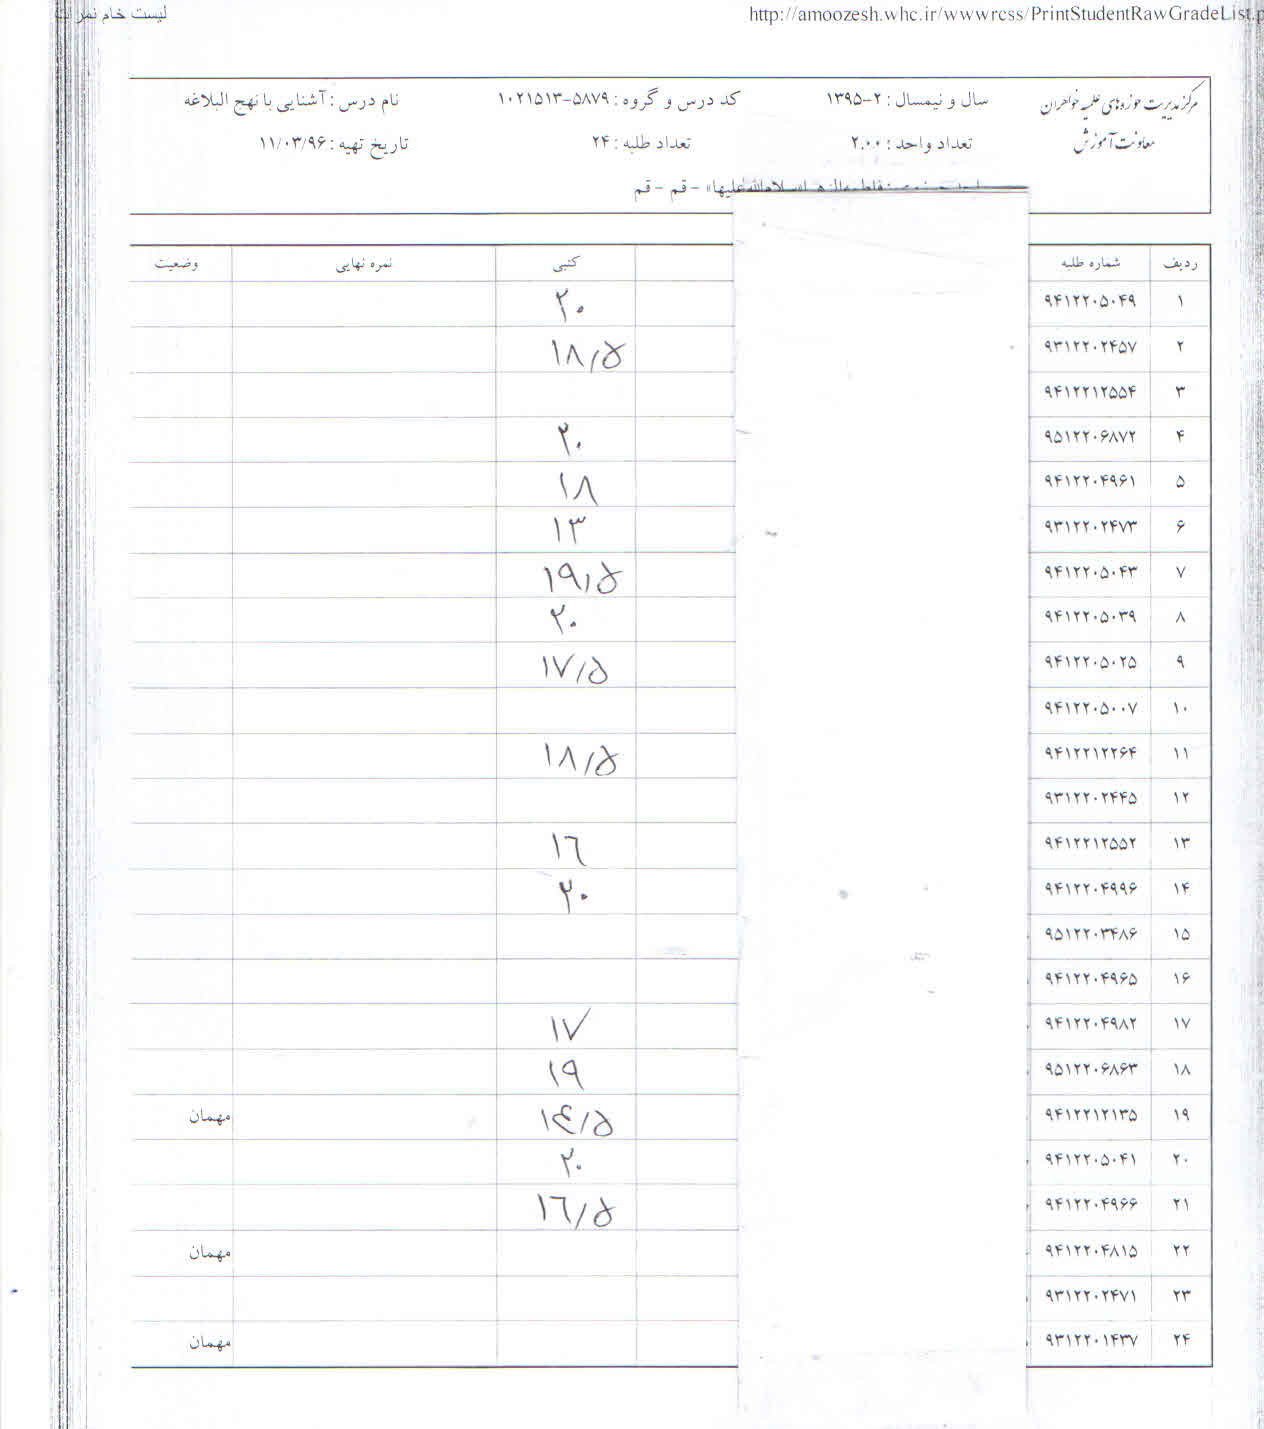 لیست خام نمرات http://amoozesh.whc.ir/wwwrcss/PrintStudentRawGradeList.p
مرکز مدیریت حوزه‌های علمیه خواهران سال و نیمسال : ۲-۱۳۹۵ کد درس و گروه : ۵۸۷۹-۱۰۲۱۵۱۳ نام درس : آشنایی با نهج البلاغه
معاونت آموزش تعداد واحد : ۲.۰۰ تعداد طلبه : ۲۴ تاریخ تهیه : ۱۱/۰۳/۹۶
علیها» - قم - قم
ردیف شماره طلبه کتبی نمره نهایی وضعیت
۱ ۹۴۱۲۲۰۵۰۴۹ ۲۰
۲ ۹۳۱۲۲۰۲۴۵۷ ۱۸/۵
۳ ۹۴۱۲۲۱۲۵۵۴
۴ ۹۵۱۲۲۰۶۸۷۲ ۲۰
۵ ۹۴۱۲۲۰۴۹۶۱ ۱۸
۶ ۹۳۱۲۲۰۲۴۷۳ ۱۳
۷ ۹۴۱۲۲۰۵۰۴۳ ۱۹/۵
۸ ۹۴۱۲۲۰۵۰۳۹ ۲۰
۹ ۹۴۱۲۲۰۵۰۲۵ ۱۷/۵
۱۰ ۹۴۱۲۲۰۵۰۰۷
۱۱ ۹۴۱۲۲۱۲۲۶۴ ۱۸/۵
۱۲ ۹۳۱۲۲۰۲۴۴۵
۱۳ ۹۴۱۲۲۱۲۵۵۲ ۱٦
۱۴ ۹۴۱۲۲۰۴۹۹۶ ۲۰
۱۵ ۹۵۱۲۲۰۳۴۸۶
۱۶ ۹۴۱۲۲۰۴۹۶۵
۱۷ ۹۴۱۲۲۰۴۹۸۲ ۱۷
۱۸ ۹۵۱۲۲۰۶۸۶۳ ۱۹
۱۹ ۹۴۱۲۲۱۲۱۳۵ ۱٤/۵ مهمان
۲۰ ۹۴۱۲۲۰۵۰۴۱ ۲۰
۲۱ ۹۴۱۲۲۰۴۹۶۶ ۱٦/۵
۲۲ ۹۴۱۲۲۰۴۸۱۵ مهمان
۲۳ ۹۳۱۲۲۰۲۴۷۱
۲۴ ۹۳۱۲۲۰۱۴۳۷ مهمان